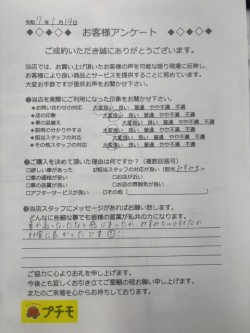 令和7年1月19日
◆◇◆◇ お客様アンケート ◆◇◆◇
ご成約いただき誠にありがとうございます。
当店では、お買い上げ頂いたお客様の声を可能な限り現場に反映し、
お客様により良い商品とサービスを提供することに努めています。
大変お手数ですが是非お声をお聞かせ下さい。
❶当店を実際にご利用になった印象をお聞かせ下さい。
●お問い合わせの対応 大変良い 良い 普通 やや不満 不満
●店の印象 大変良い 良い 普通 やや不満 不満
●車の品揃え 大変良い 良い 普通 やや不満 不満
●説明の分かりやすさ 大変良い 良い 普通 やや不満 不満
●担当スタッフの対応 大変良い 良い 普通 やや不満 不満
●その他スタッフの対応 大変良い 良い 普通 やや不満 不満
❷ご購入を決めて頂いた理由は何ですか？（複数回答可）
□欲しい車があった ☑担当スタッフの対応が良い（担当
□車の価格が安い □お店が近い
□車の品質が良い □お店の雰囲気が良い
□アフターサービスが良い □その他（ ）
❸当店スタッフにメッセージがあればお願い致します。
どんなに些細な事でも皆様の意見が私共の力になります。
ご協力に心よりお礼を申し上げます。
今後とも宜しくお引き立てご愛顧の程お願い申し上げます。
またのご来場を心からお待ちしております。
プチモ